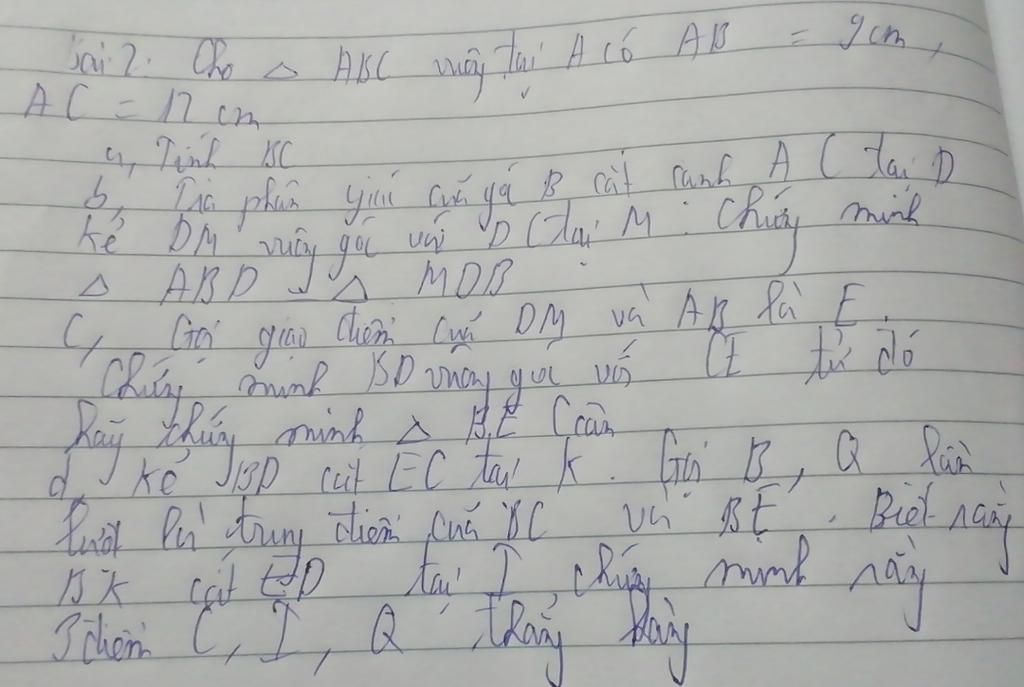 Bài 2. Cho △ ABC vuông tại A có AB = 9cm,
AC = 12 cm
a, Tính BC
b, Tia phân giác của góc B cắt cạnh AC tại D
kẻ DM vuông góc với DC tại M. Chứng minh
△ ABD = △ MDB
C, Gọi giao điểm của DM và AB là E.
Chứng minh BD vuông góc với CE từ đó
hãy chứng minh △ BEC cân
d, kẻ BD cắt EC tại K. Gọi B, Q lần
lượt là trung điểm của BC và BE. Biết rằng
BK cắt ED tại I, chứng minh rằng
3 điểm C, I, Q thẳng hàng